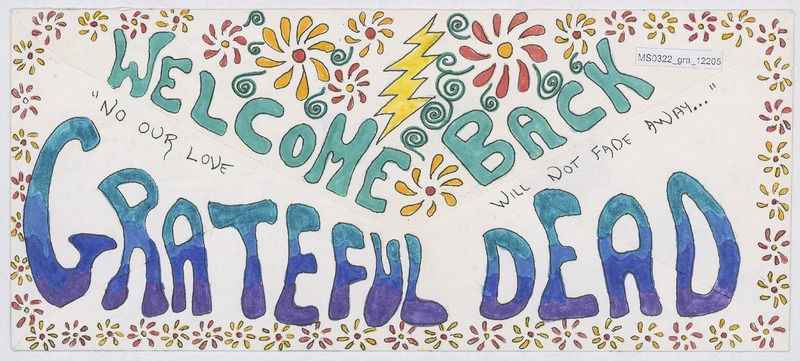 WELCOME BACK
MS0322_gra_12205
"NO OUR LOVE
WILL NOT FADE AWAY..."
GRATEFUL DEAD